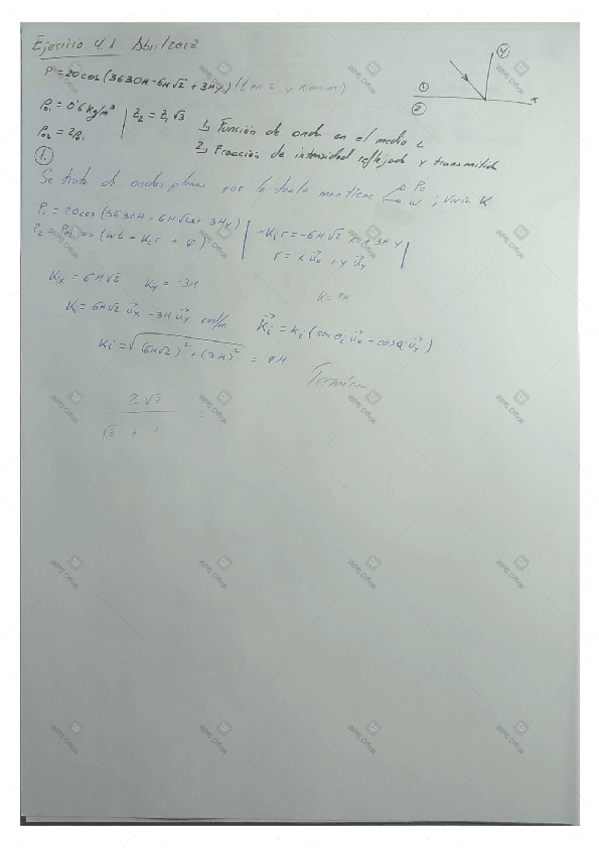 Ejercicio 4.1 Abril 2018
P = 20 cos (3630π - 6π√2 + 3πy) (t en s y x en m)
ρ01 = 0'6 kg/m³
Z2 = Z1√3
ρ02 = 2ρ01
1) Función de onda en el medio 2
2) Fracción de intensidad reflejada y transmitida
1
2
y
x
1.
Se trata de ondas planas por lo tanto mantiene P0 ω ; varía K
P1 = 20cos (3630π - 6π√2x + 3πy)
-K1 r = -6π√2 x + 3π y
P2 = P02 cos (ωt - K2 r + φ)
r = x ux + y uy
Kix = 6π√2 Kiy = -3π
K = 9π
Ki = 6π√2 ux - 3π uy rad/m
Ki = ki (sen θi ux - cos θi uy)
Ki = √(6π√2)² + (3π)² = 9π
2√3
√3 + 1 =